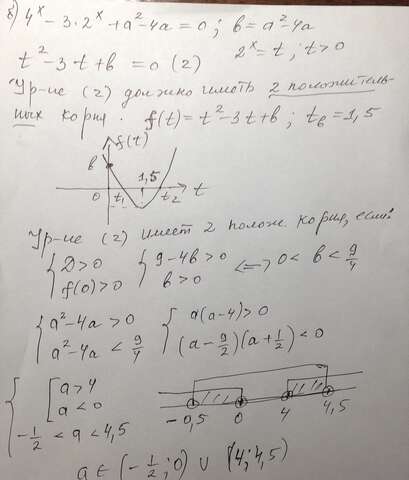 б) 4ˣ - 3·2ˣ + a² - 4a = 0 ; в = a² - 4a
t² - 3t + в = 0 (2) 2ˣ = t ; t > 0
Ур-ие (2) должно иметь 2 положитель-
ных корня. f(t) = t² - 3t + в ; t в = 1,5
f(t)
в
1,5
0 t₁ t₂ t
Ур-ие (2) имеет 2 полож. корня, если:
{ D > 0 { 9 - 4в > 0 <=> 0 < в < 9/4
{ f(0) > 0 { в > 0
{ a² - 4a > 0 { a(a - 4) > 0
{ a² - 4a < 9/4 { (a - 9/2)(a + 1/2) < 0
{ [ a > 4
[ a < 0
- 1/2 < a < 4,5
-0,5 0 4 4,5
a ∈ (- 1/2 ; 0) ∪ (4 ; 4,5)